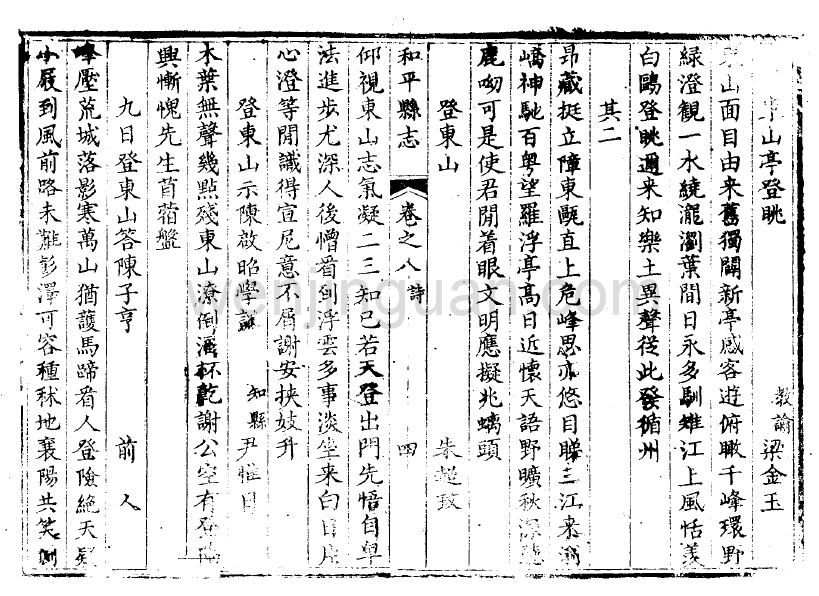 東山亭登眺　教諭梁金玉
東山面目由來舊獨闢新亭感客遊俯瞰千峰環野
綠澄観一水繞瀧瀏葉間日永多馴雉江上風恬羡
白鷗登眺邇来知樂土異聲從此發循州
其二
昂藏挺立障東甌直上危峰思亦悠目睇三江来
嶠神馳百粤望羅浮亭髙日近懷天語野曠秋深聽
鹿呦可是使君開着眼文明應擬兆螭頭
登東山　朱超玟
和平縣志　卷之八　詩　四
仰視東山志氣凝二三知已若天登出門先悟自卑
法進歩尤深人後憎看到浮雲多事淡坐来白日片
心澄等閒識得宣尼意不屑謝安挟妓升
登東山示陳啟昭學　知縣尹惟日
木葉無聲幾點殘東山潦倒酒杯乾謝公空有登
興慚愧先生苜蓿盤
九日登東山答陳子亨　前人
峰壓荒城落影寒萬山猶護馬蹄看人登險絶天疑
小屐到風前路未難彭澤可容種秫地襄陽共笑
wenjinguan.com